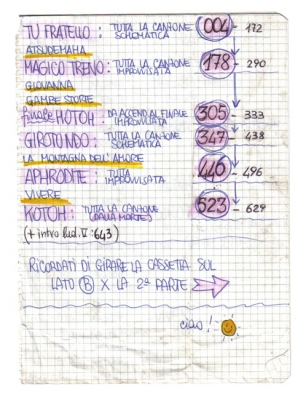 TU FRATELLO : TUTTA LA CANZONE SCHEMATICA 004 - 172
ATSUDEMAMA
MAGICO TRENO : TUTTA LA CANZONE IMPROVVISATA 178 - 290
GIOVANNA
GAMBE STORTE
finale KOTOH : DA ACCENDI AL FINALE IMPROVVISATA 305 - 333
GIROTONDO : TUTTA LA CANZONE SCHEMATICA 347 - 438
LA MONTAGNA DELL'AMORE
APHRODITE : TUTTA IMPROVVISATA 446 - 496
VIVERE
KOTOH : TUTTA LA CANZONE (DALLA MORTE) 523 - 629
(+ intro lud. II : 643)
RICORDATI DI GIRARE LA CASSETTA SUL
LATO B X LA 2ª PARTE
ciao !